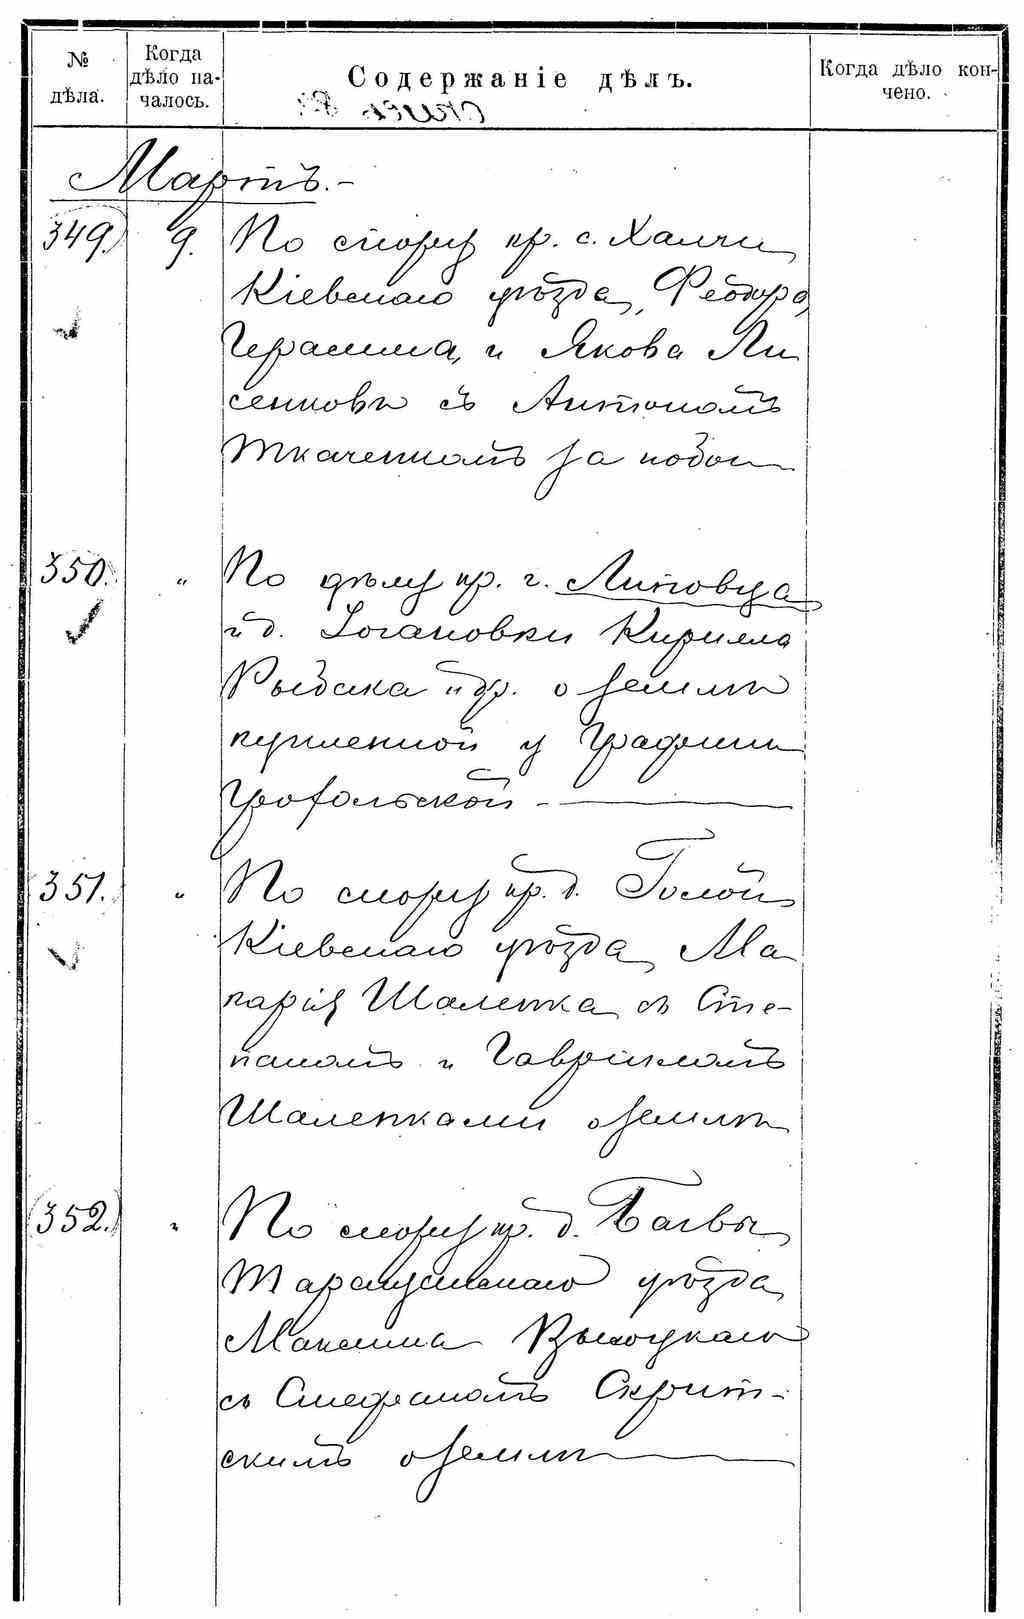 № дѣла.
Когда дѣло на-
чалось.
Содержаніе дѣлъ.
Когда дѣло кон-
чено.
Мартъ.-
349. 9. По спору кр. с. Халчи
Кіевскаго уѣзда, Ѳеодора,
Герасима, и Якова Ли
сенковы съ Антономъ
Ткаченкомъ за побои
350. " По дѣлу кр. г. Липовца
и д. Іогановки Кирилла
Рыбака и др. о землѣ
купленной у Графини
Грохольской -
351. " По спору кр. д. Голой
Кіевскаго уѣзда, Ма
карія Шаленка съ Сте-
паномъ и Гавріиломъ
Шаленками о землѣ
352. " По спору кр. д. Багвы
Таращанскаго уѣзда
Максима Высоцкаго
съ Стефаномъ Скрип-
скимъ о землѣ